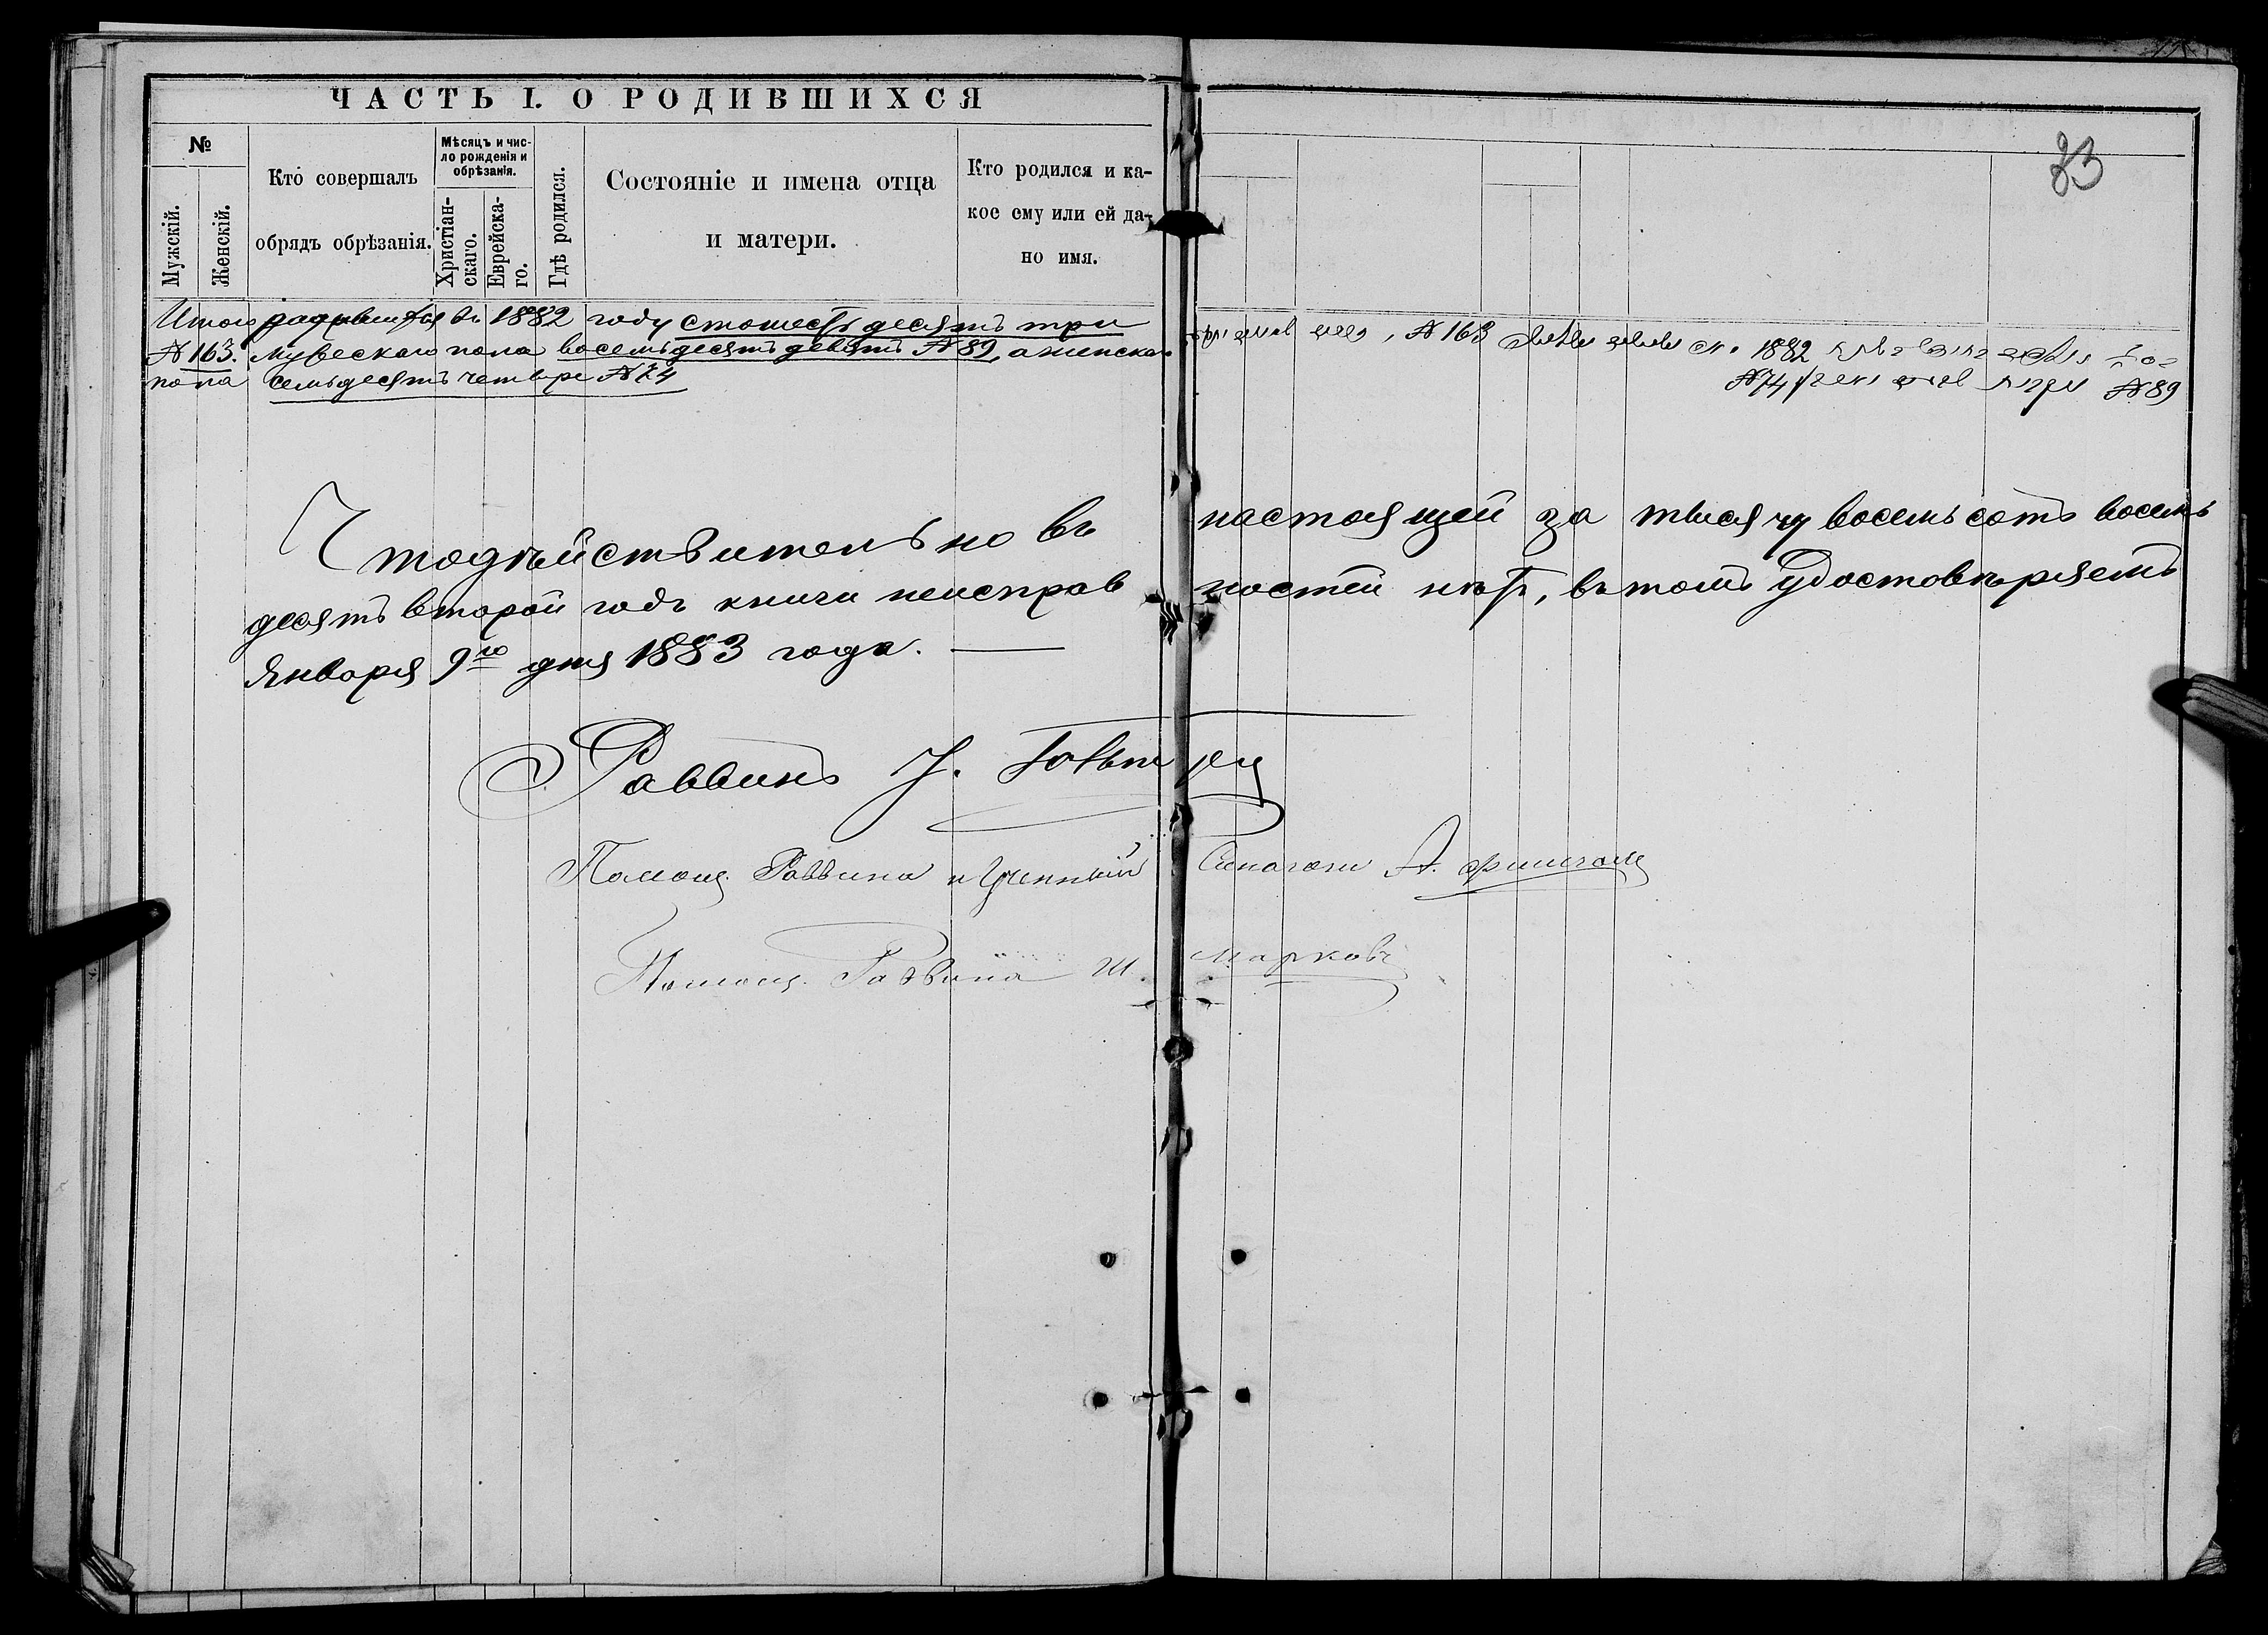 ЧАСТЬ I. О РОДИВШИХСЯ
№
Мужскій.
Женскій.
Кто совершалъ
обрядъ обрѣзанія.
Мѣсяцъ и чис-
ло рожденія и
обрѣзанія.
Христіан-
скаго.
Еврейска-
го.
Гдѣ родился.
Состояніе и имена отца
и матери.
Кто родился и ка-
кое ему или ей да-
но имя.
83
Итого родившихся въ 1882 году стошестьдесятъ три
№ 163. мужескаго пола восемьдесятъ девять № 89, а женска
пола семьдесятъ четыре № 74
№ 163 1882
№ 74 № 89
Что дѣйствительно въ настоящей за тысячу восемьсотъ восемь
десятъ второй годъ книги неисправ ностей нѣтъ, въ томъ удостовѣряемъ
Января 9го дня 1883 года.
Раввинъ
Помощ. Раввина и Ученный Синагоги А.
Помощ. Раввина Ш. Марковъ